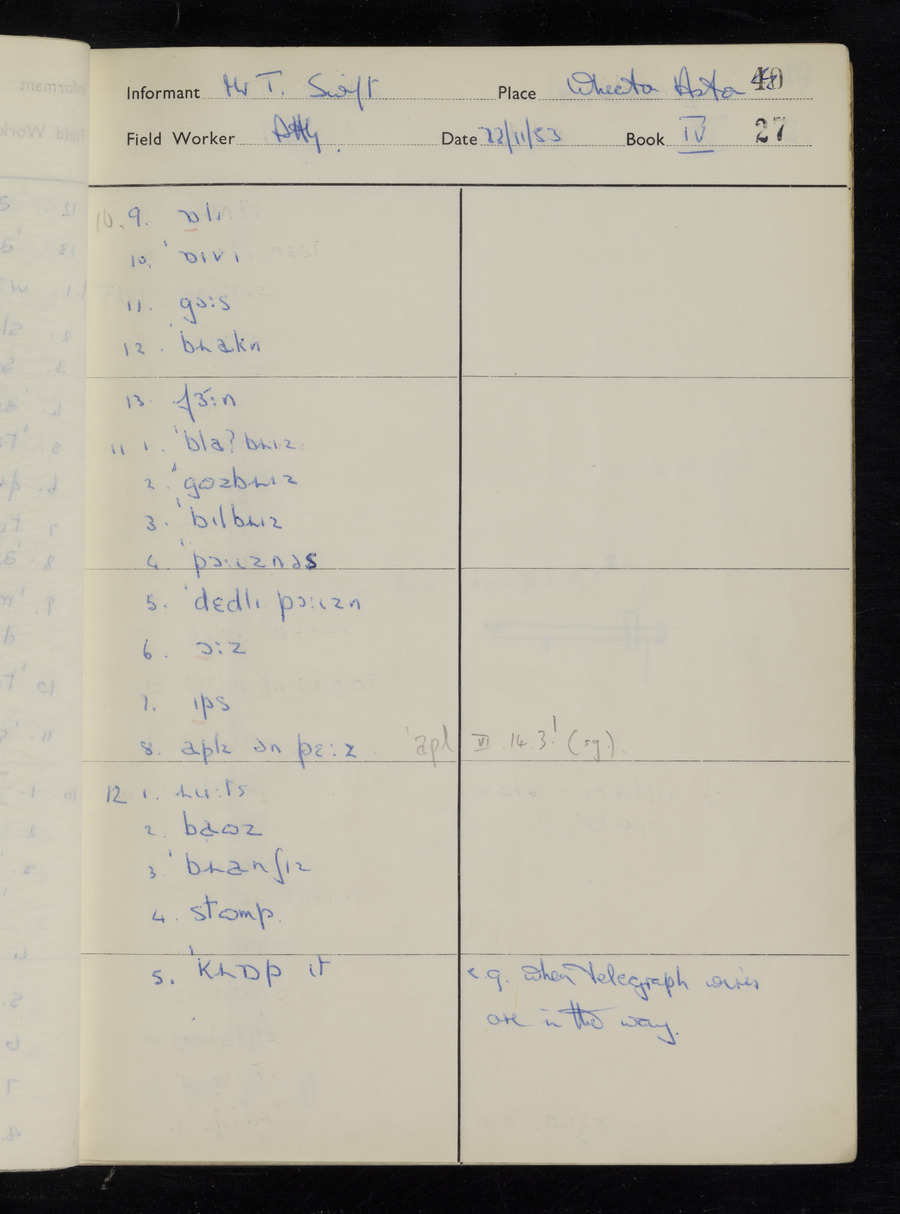 Informant Mr T. Swift Place Wheaton Aston 40
Field Worker Date 22/11/53 Book IV 27
10. 9. ɒlɪ
10. ˈɒɪvɪ
11. gɔːs
12. ˈbɹakn
13. fɜːn
11 1. ˈblaʔbɹɪz
2. ˈgʊzbɹɪz
3. ˈbɪlbɹɪz
4. ˈpɔːɪznəs
5. ˈdɛdlɪ pɔːɪzn
6. ɔːz
7. ɪps
8. aplz ən pɛːz ˈapl VI 14 3 (sg.)
12 1. ɹuːts
2. baʊz
3. ˈbɹanʃɪz
4. stʊmp.
5. ˈkɹɒp ɪt e.g. when telegraph wires
are in the way.